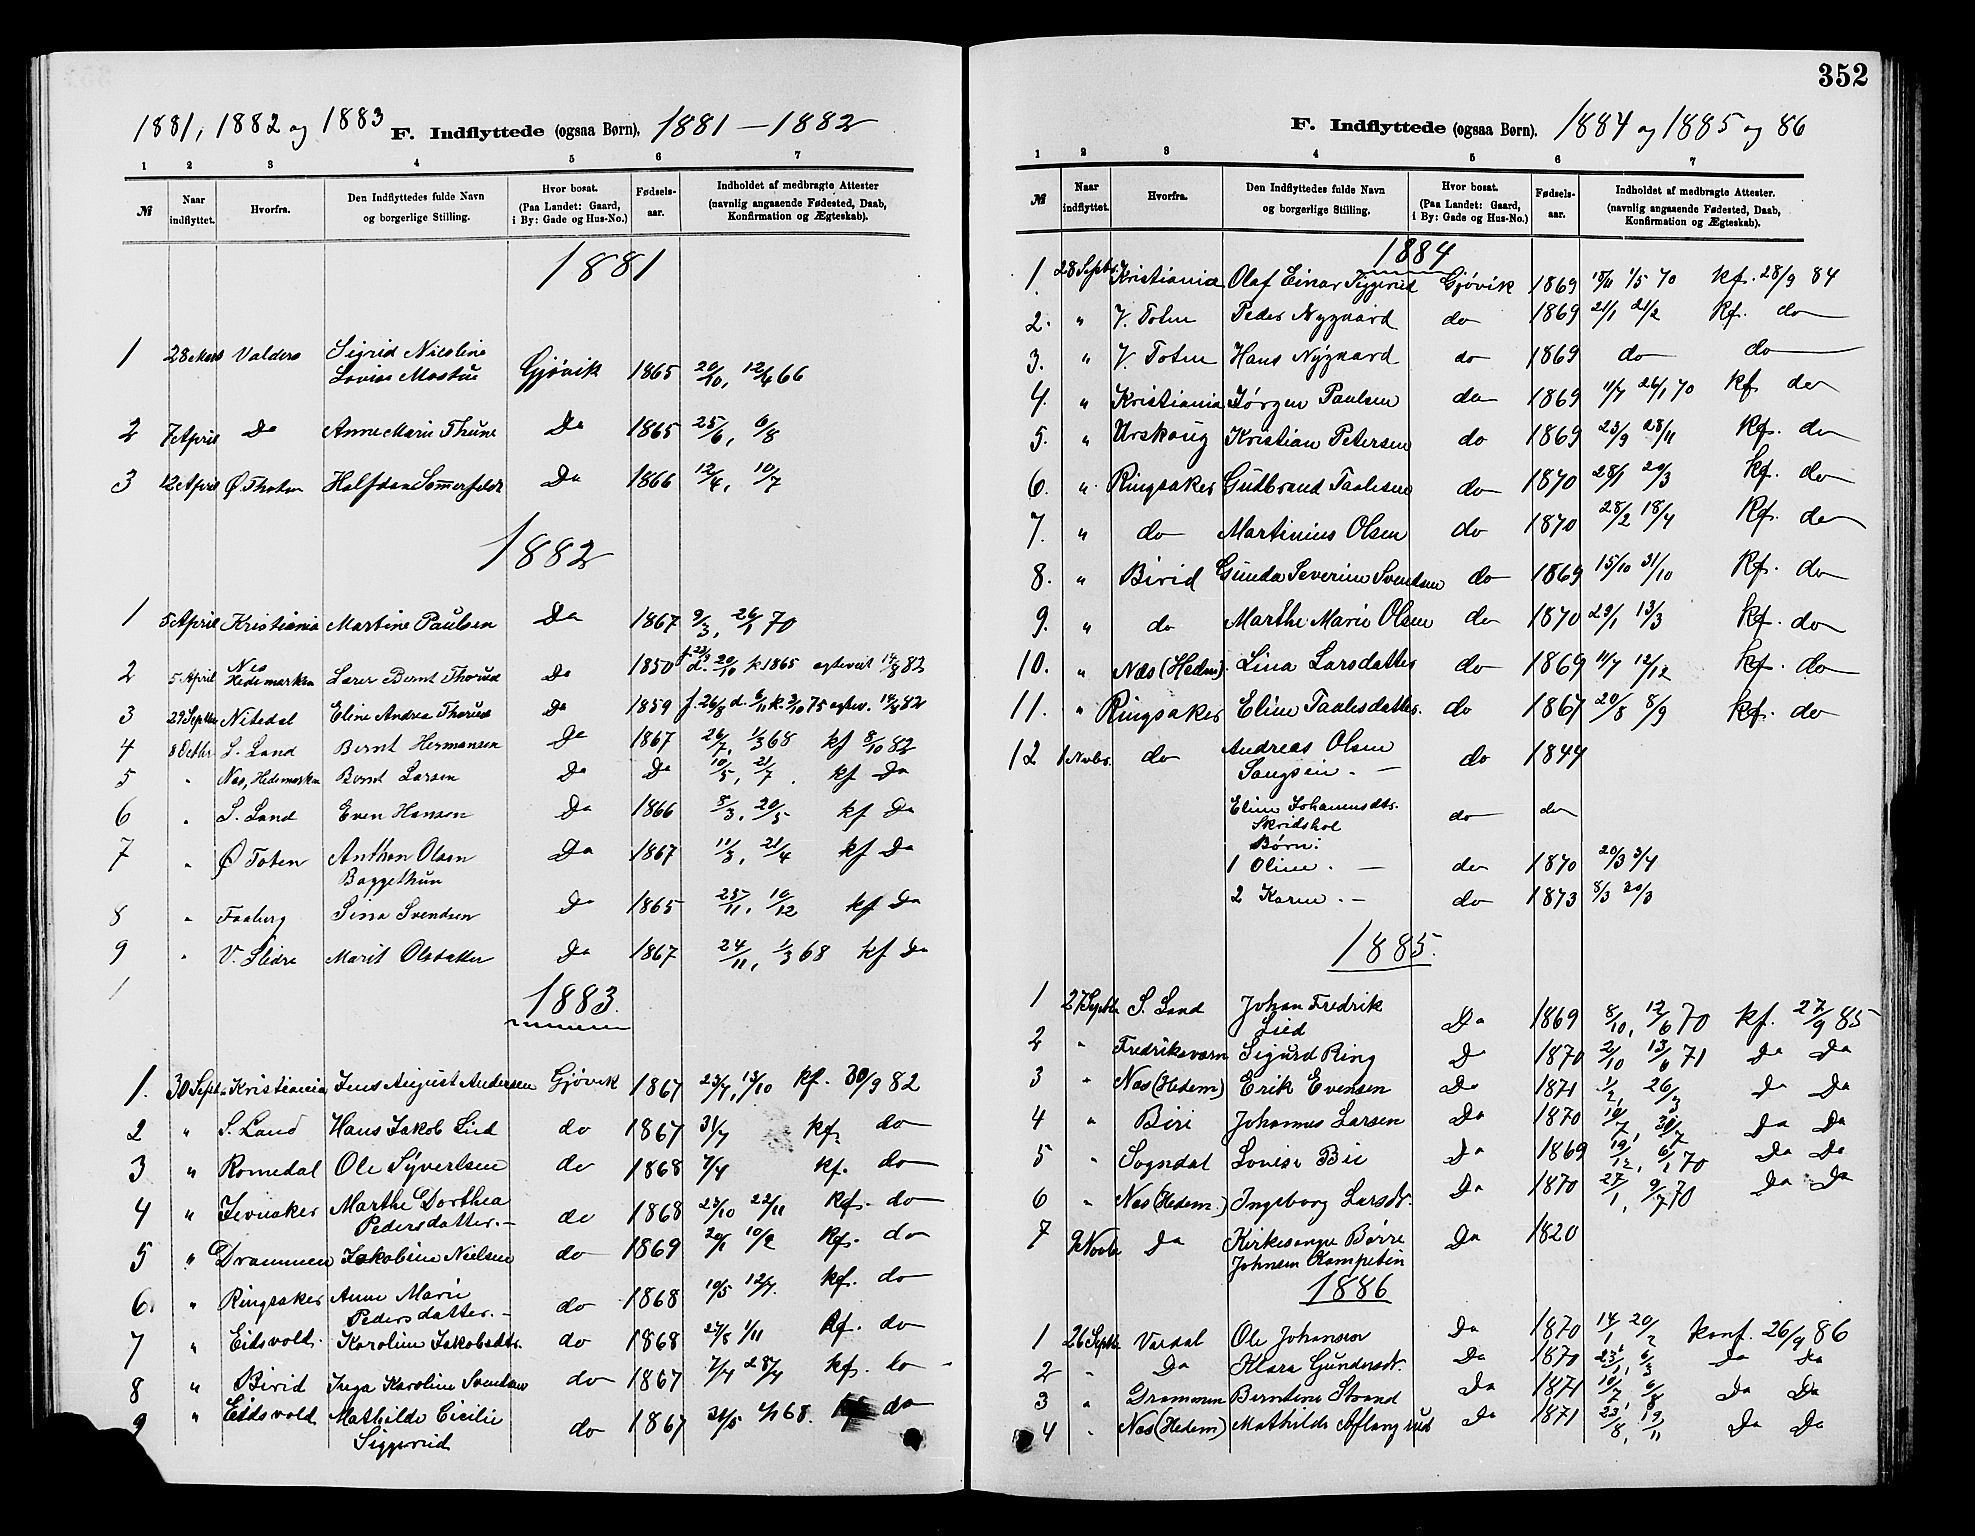 1881, 1882 og 1883 F. Indflyttede (ogsaa Børn), 1881 — 1882
1 2 3 4 5 6 7
№ Naar indflyttet. Hvorfra. Den Indflyttedes fulde Navn og borgerlige Stilling. Hvor bosat. (Paa Landet: Gaard, i By: Gade og Hus-No.) Fødsels-aar. Indholdet af medbragte Attester (navnlig angaaende Fødested, Daab, Konfirmation og Ægteskab).
1881
1 28 Marts Valders Sigrid Nicoline
Lovise Mostue Gjøvik 1865 20/10, 12/4 66
2 7 April Do Anne Marie Thune Do 1865 25/6, 6/8
3 12 April Ø. Thoten Halfdan Sommerfeldt Do 1866 12/4, 10/7
1882
1 5 April Kristiania Martine Paulsen Do 1867 9/3, 26/1 70
2 5 April Nes Hedemarken Lærer Bernt Thorud Do 1850 f. 22/9 d. 20/10 k 1865 agteviet 14/8 82
3 29 Septbr Nitedal Eline Andrea Thorud Do 1859 f. 26/8 d. 6/11 k. 3/10 75 agtev. 14/8 82
4 8 Octbr S. Land Bernt Hermansen Do 1867 26/7, 1/3 68 kf 8/10 82
5 " Nas, Hedemarken Bernt Larsen Do Do 10/5, 21/7 kf Do
6 " S. Land Even Hansen Do 1866 8/3, 20/5 kf Do
7 " Ø Toten Anthon Olsen
Baggethun Do 1867 11/3, 21/4 kf Do
8 " Faaberg Sina Svendsen Do 1865 25/11, 10/12 kf Do
9 " V. Slidre Marit Olsdatter Do 1867 24/11, 1/3 68 kf Do
1883.
1. 30 Septr Kristiania Jens August Andersen Gjøvik 1867 23/7, 13/10 kf. 30/9 82
2 " S. Land Hans Jakob Lied do 1867 31/7 kf. do
3 " Romedal Ole Syvertsen do 1868 7/4 kf. do
4 " Jevnaker Marthe Dorthea
Pedersdatter. — do 1868 23/10 22/11 kf. do
5 " Drammen Jakobine Nielsen do 1869 20/1 10/2 kf. do
6. " Ringsaker Anne Marie
Pedersdatter. — do 1868 10/5 12/7. kf. do
7 " Eidsvold. Karoline Jakobsdtr. do 1868 27/8 1/11 kf. do
8 " Birid Inga Karoline Svendsen do 1867 7/4 28/4 kf. do
9 " Eidsvold Mathilde Cicilie
Siggerud do 1867 31/5 68. do
352
F. Indflyttede (ogsaa Børn). 1884 og 1885 og 86
1 2 3 4 5 6 7
№ Naar indflyttet. Hvorfra. Den Indflyttedes fulde Navn og borgerlige Stilling. Hvor bosat. (Paa Landet: Gaard, i By: Gade og Hus-No.) Fødsels-aar. Indholdet af medbragte Attester. (navnlig angaaende Fødested, Daab, Konfirmation og Ægteskab).
1884
1. 28 Septbr. Kristiania Olaf Einar Siggerud Gjøvik 1869 1/5 70 kf. 28/9 84
2. " V. Toten Peder Nygaard do 1869 21/1 21/2 kf. do
3. " V. Toten Hans Nygaard do 1869 do do
4. " Kristiania Jørgen Paulsen do 1869 11/7 26/1 70 kf do
5. " Urskoug Kristian Petersen do 1869 23/9 28/11 kf. do
6. " Ringsaker Gudbrand Paalesen do 1870 28/1 20/3 kf. do
7. " do Martinius Olsen do 1870 28/2 18/4 kf. do
8. " Birid Gunda Severine Svendsen do 1869 15/10 31/10 kf. do
9. " do Marthe Marie Olsen do 1870 29/1 13/3 kf. do
10. " Næs (Hedem) Lina Larsdatter do 1869 11/7 12/12 kf. do
11. " Ringsaker Eline Paalesdatter. do 1867 20/8 8/9 kf. do
12 1 Novbr. do Andreas Olsen
Saugseien. — do 1844
Eline Johannesdtr.
Skridshol do do
Børn:
1 Oline. — do 1870 20/3 3/4
2 Karen. — do 1873 8/3 30/3
1885.
1 27 Septbr S. Land Johan Fredrik
Lied Do 1869 8/10, 12/6 70 kf. 27/9 85
2 " Fredriksværn Sigurd Ring Do 1870 2/10 13/6 71 Do Do
3 " Nas (Hedem) Erik Evensen Do 1871 1/2, 26/3 Do Do
4 " Biri Johannes Larsen Do 1870 10/7, 31/7 Do Do
5 " Sogndal Lovise Bie Do 1869 19/12, 6/1 70 Do Do
6 " Nas (Hedem.) Ingeborg Larsdtr. Do 1870 27/1, 9/7 70 Do Do
7 9 Novbr Do Kirkesanger Børre
Johnsen Do 1820
1886
1 26 Septbr Vardal Ole Johansen Do 1870 14/1 20/2 konf. 26/9 86
2 " Do Klara Gundersdtr. Do 1870 23/1, 6/3 Do Do
3 " Drammen Berntine Strand Do 1871 10/7, 6/8 Do Do
4 " Nas (Hedem) Mathilde Aflangrud Do 1871 23/8, 19/11 Do Do